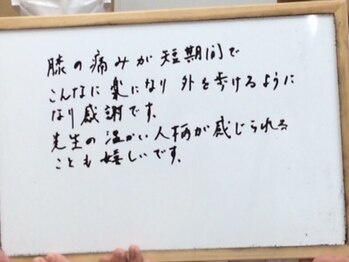 膝の痛みが短期間で
こんなに楽になり外を歩けるように
なり感謝です。
先生の温かい人柄が感じられる
ことも嬉しいです。